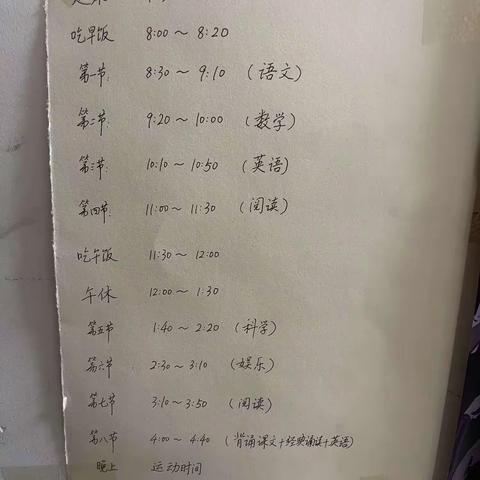 吃早饭 8:00~8:20
第一节 8:30~9:10 (语文)
第二节 9:20~10:00 (数学)
第三节 10:10~10:50 (英语)
第四节 11:00~11:30 (阅读)
吃午饭 11:30~12:00
午休 12:00~1:30
第五节 1:40~2:20 (科学)
第六节 2:30~3:10 (娱乐)
第七节 3:10~3:50 (阅读)
第八节 4:00~4:40 (背诵课文+经典诵读+英语)
晚上 运动时间